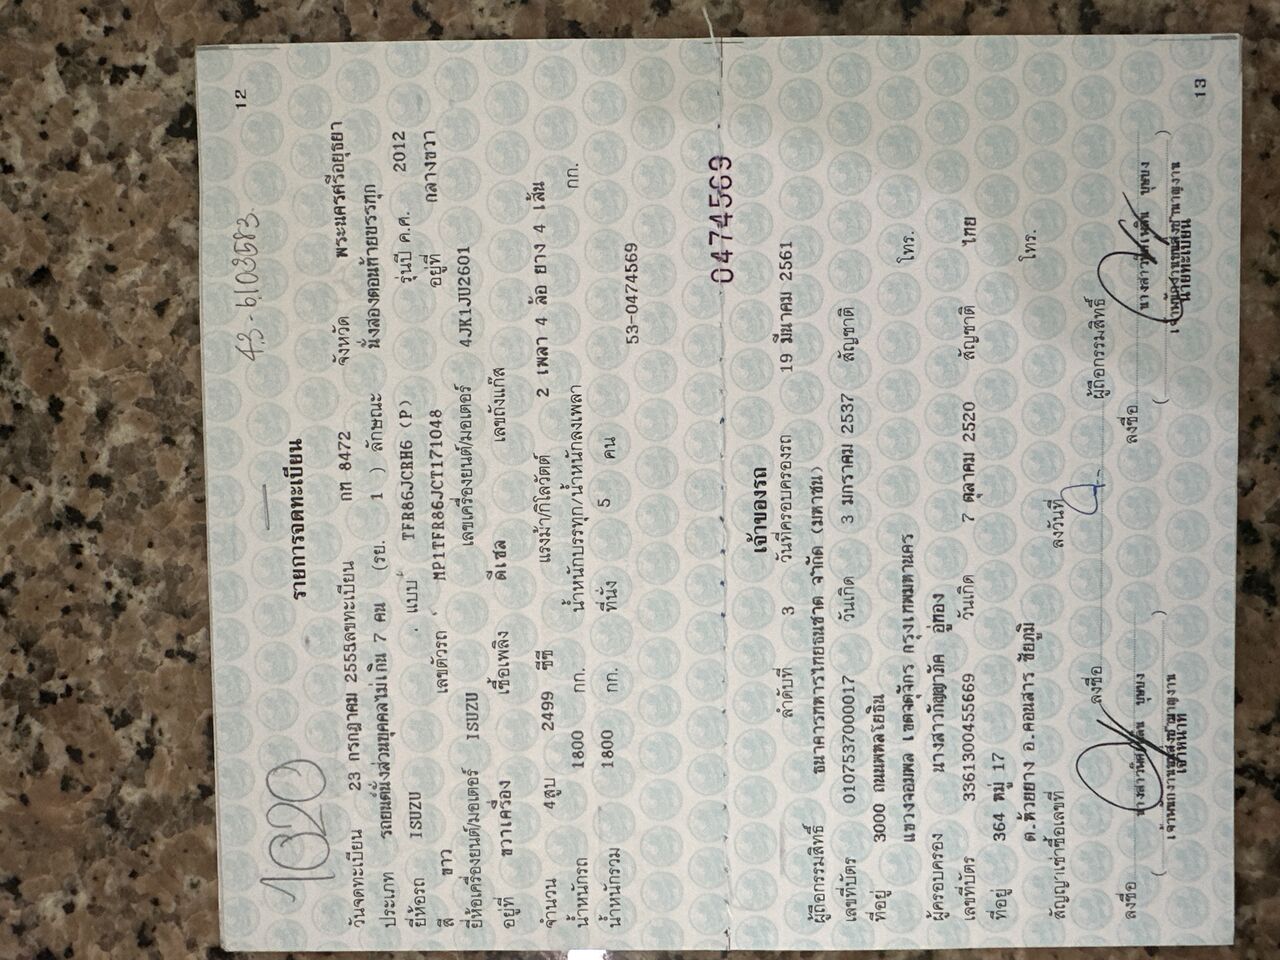 12
43-6103583
1020
รายการจดทะเบียน
วันจดทะเบียน 23 กรกฎาคม 2555 เลขทะเบียน กท 8472 จังหวัด พระนครศรีอยุธยา
ประเภท รถยนต์นั่งส่วนบุคคลไม่เกิน 7 คน (รย. 1 ) ลักษณะ นั่งสองตอนท้ายบรรทุก
ยี่ห้อรถ ISUZU แบบ TFR86JCRH6 (P) รุ่นปี ค.ศ. 2012
สี ขาว เลขตัวรถ MP1TFR86JCT171048 อยู่ที่ กลางขวา
ยี่ห้อเครื่องยนต์/มอเตอร์ ISUZU เลขเครื่องยนต์/มอเตอร์ 4JK1JU2601
อยู่ที่ ขวาเครื่อง เชื้อเพลิง ดีเซล เลขถังแก๊ส
จำนวน 4สูบ 2499 ซีซี แรงม้า/กิโลวัตต์ 2 เพลา 4 ล้อ ยาง 4 เส้น
น้ำหนักรถ 1800 กก. น้ำหนักบรรทุก/น้ำหนักลงเพลา กก.
น้ำหนักรวม 1800 กก. ที่นั่ง 5 คน 53-0474569
0474569
เจ้าของรถ
ลำดับที่ 3 วันที่ครอบครองรถ 19 มีนาคม 2561
ผู้ถือกรรมสิทธิ์ ธนาคารทหารไทยธนชาต จำกัด (มหาชน)
เลขที่บัตร 0107537000017 วันเกิด 3 มกราคม 2537 สัญชาติ
ที่อยู่ 3000 ถนนพหลโยธิน
แขวงจอมพล เขตจตุจักร กรุงเทพมหานคร โทร.
ผู้ครอบครอง นางสาวกัญญาภัค อู่ทอง
เลขที่บัตร 3361300455669 วันเกิด 7 ตุลาคม 2520 สัญชาติ ไทย
ที่อยู่ 364 หมู่ 17
ต.ห้วยยาง อ.คอนสาร ชัยภูมิ โทร.
สัญญาเช่าซื้อเลขที่ ลงวันที่
ลงชื่อ ผู้ถือกรรมสิทธิ์
ลงชื่อ นางสาว บุษบง ลงชื่อ นางสาว บุษบง
( ) ( )
เจ้าพนักงานขนส่งชำนาญงาน เจ้าพนักงานขนส่งชำนาญงาน
เจ้าหน้าที่ นายทะเบียน
13